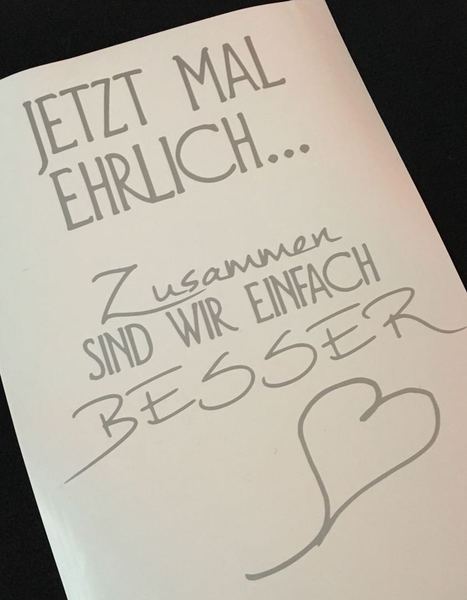 JETZT MAL
EHRLICH...
Zusammen
SIND WIR EINFACH
BESSER